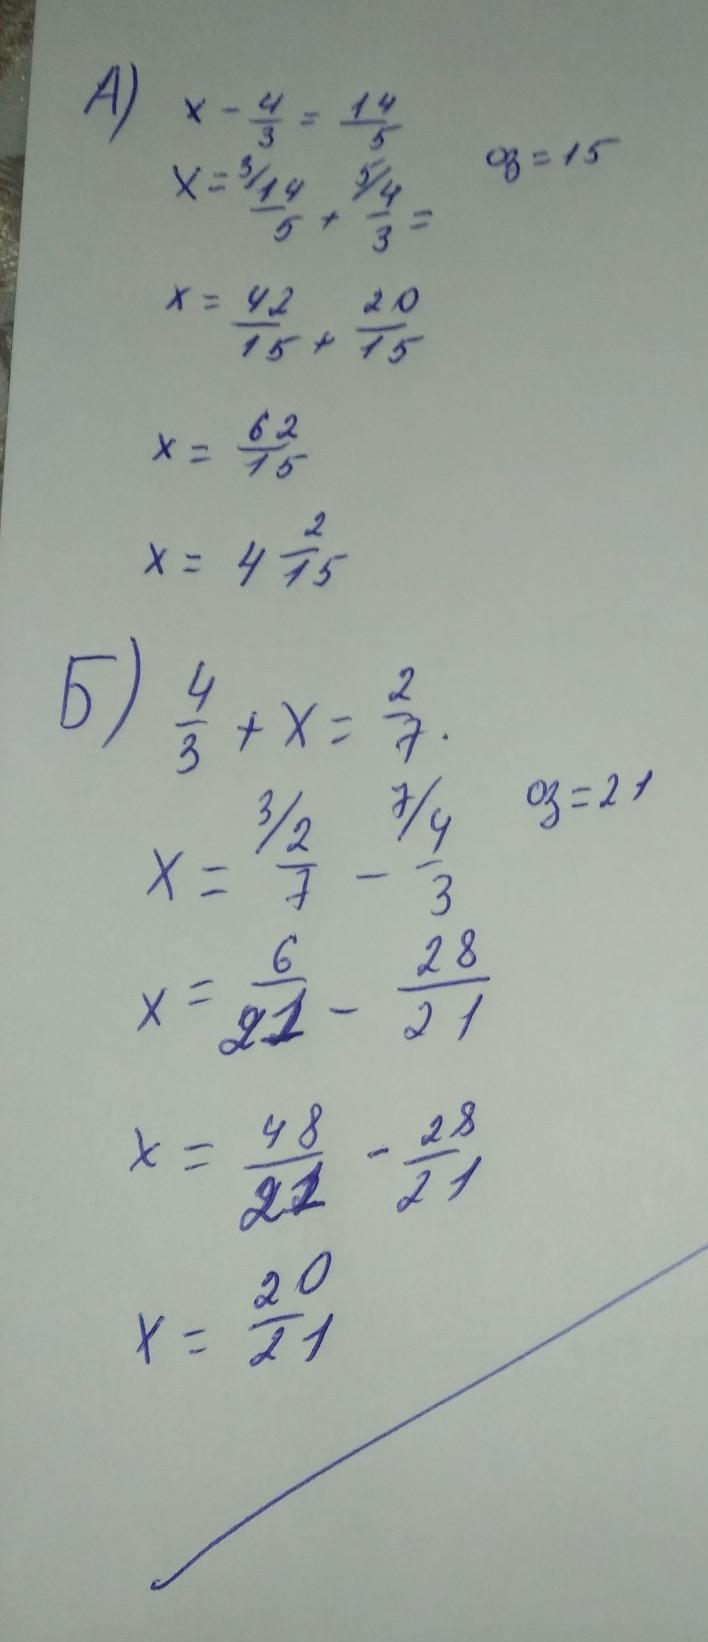 А) x - 4/3 = 14/5
x = ³/14/5 + ⁵/4/3 = оз = 15
x = 42/15 + 20/15
x = 62/15
x = 4 2/15
Б) 4/3 + x = 2/7.
x = ³/2/7 - ⁷/4/3 оз = 21
x = 6/21 - 28/21
x = 48/21 - 28/21
x = 20/21